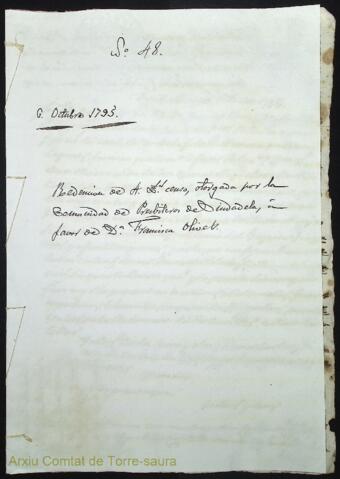 Nº 48.
6. Octubre 1793.
Redencion de 4 Ls. censo, otorgada por la
Comunidad de Presbiteros de Ciudadela, á
favor de Dª Francisca Olives.
Arxiu Comtat de Torre-saura